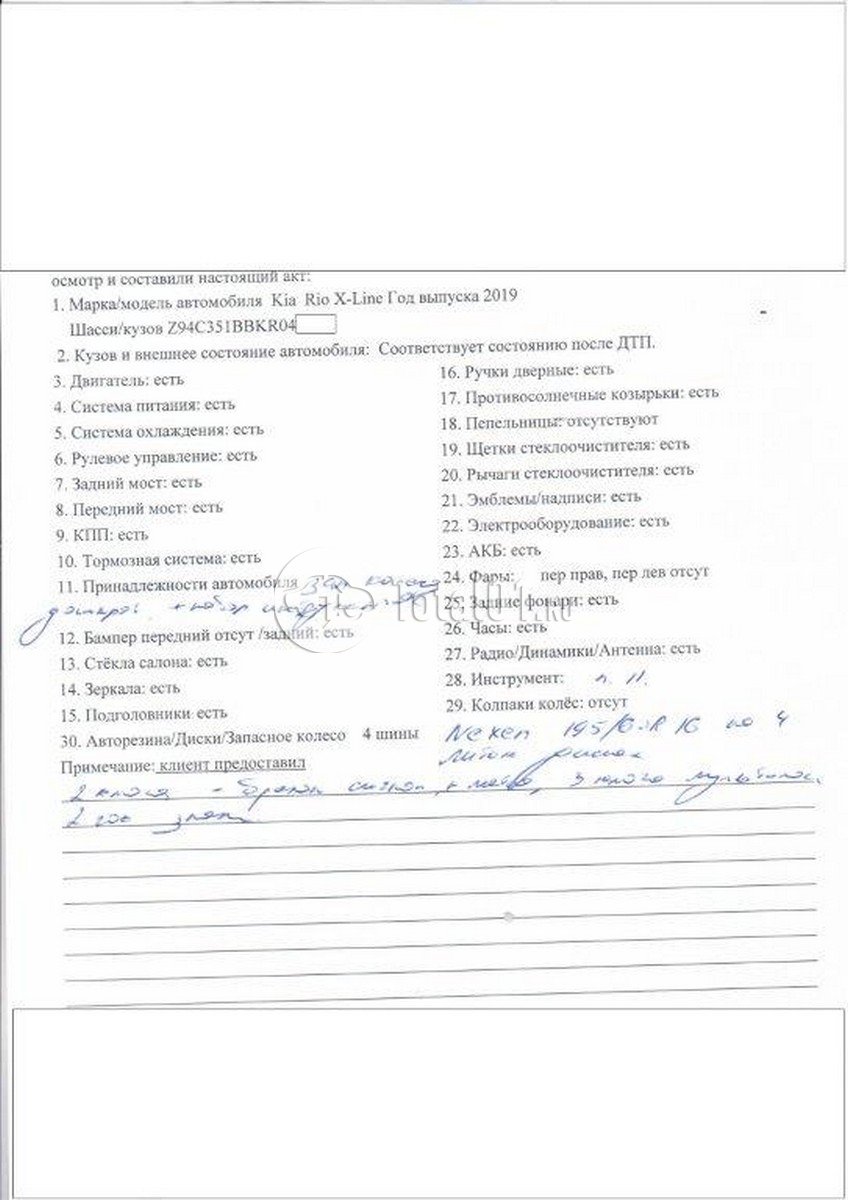 осмотр и составили настоящий акт:
1. Марка/модель автомобиля Kia Rio X-Line Год выпуска 2019
Шасси/кузов Z94C351BBKR04
2. Кузов и внешнее состояние автомобиля: Соответствует состоянию после ДТП.
3. Двигатель: есть
4. Система питания: есть
5. Система охлаждения: есть
6. Рулевое управление: есть
7. Задний мост: есть
8. Передний мост: есть
9. КПП: есть
10. Тормозная система: есть
11. Принадлежности автомобиля зап колесо
домкрат + набор
12. Бампер передний отсут /задний: есть
13. Стёкла салона: есть
14. Зеркала: есть
15. Подголовники есть
16. Ручки дверные: есть
17. Противосолнечные козырьки: есть
18. Пепельницы: отсутствуют
19. Щетки стеклоочистителя: есть
20. Рычаги стеклоочистителя: есть
21. Эмблемы/надписи: есть
22. Электрооборудование: есть
23. АКБ: есть
24. Фары: пер прав, пер лев отсут
25. Задние фонари: есть
26. Часы: есть
27. Радио/Динамики/Антенна: есть
28. Инструмент: п. 11.
29. Колпаки колёс: отсут
30. Авторезина/Диски/Запасное колесо 4 шины Nexen R 16 на 4
литых дисках
Примечание: клиент предоставил
2 ключа
2
total01.ru